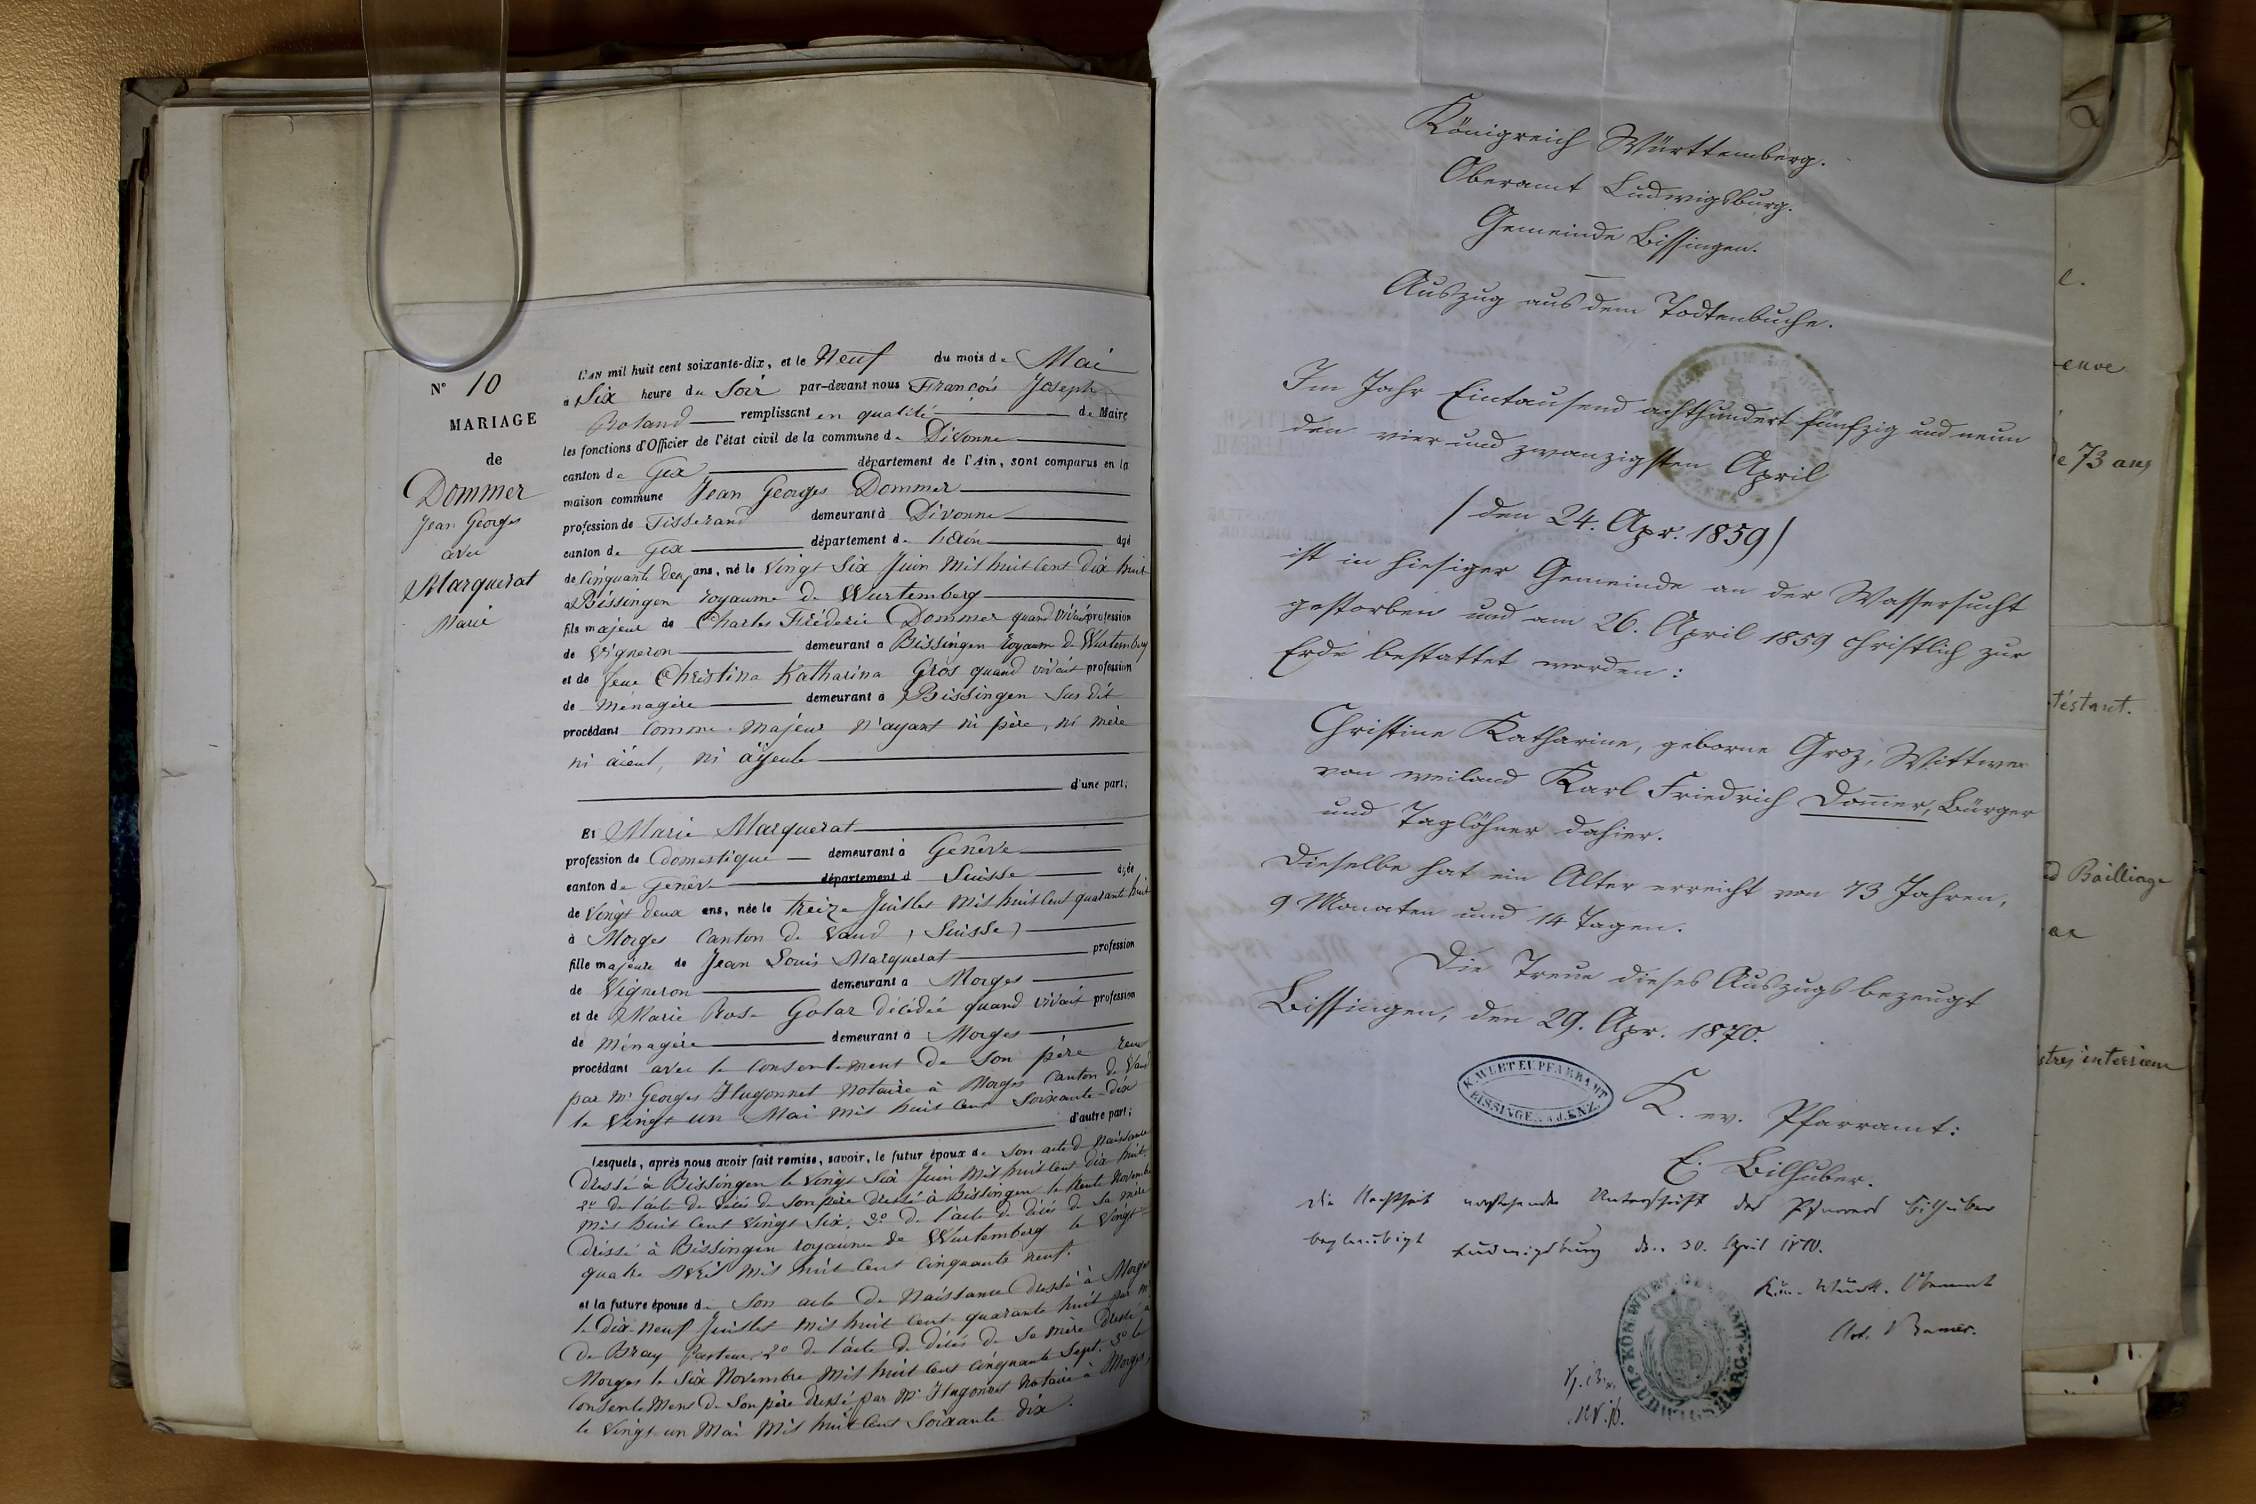 N° 10
MARIAGE
de
Dommer
Jean Georges
avec
Marquerat
Marie
L'AN mil huit cent soixante-dix, et le Neuf du mois de Mai
à Six heure du Soir par-devant nous François Joseph
Roland remplissant en qualité de Maire
les fonctions d'Officier de l'état civil de la commune de Divonne
canton de Gex département de l'Ain, sont comparus en la
maison commune Jean Georges Dommer
profession de Tisserand demeurant à Divonne
canton de Gex département de L'ain âgé
de Cinquante deux ans, né le Vingt Six Juin Mil huit Cent Dix huit
à Bissingen royaume de Wurtemberg
fils majeur de Charles Fréderic Dommer quand vivait profession
de Vigneron demeurant à Bissingen royaume de Wurtemberg
et de feue Christina Katharina Gros quand vivait profession
de Ménagère demeurant à Bissingen Sus dit
procédant comme majeur n'ayant ni père, ni mère
ni aïeul, ni aÿeule
d'une part;
Et Marie Marquerat
profession de Domestique demeurant à Genêve
canton de Genêve département d Suisse âgée
de Vingt deux ans, née le treize Juillet Mil huit Cent quarante huit
à Morges Canton de Vaud, (Suisse)
fille majeure de Jean Louis Marquerat profession
de Vigneron demeurant à Morges
et de Marie Rose Golaz décédée quand vivait profession
de Ménagère demeurant à Morges
procédant avec le consentement de son père reçu
par Mr Georges Hugonnet Notaire à Morges Canton de Vaud
le Vingt un Mai mil huit Cent Soixante-dix
d'autre part;
Lesquels, après nous avoir fait remise, savoir, le futur époux de Son acte de Naissance
Dressé à Bissingen le Vingt Six Juin Mil huit Cent Dix huit
2° de l'acte de décès de son père dressé à Bissingen le trente Novembre
mil huit Cent Vingt Six, 3° de l'acte de décès de sa mère
dressé à Bissingen royaume de Wurtemberg le Vingt
quatre Avril Mil huit Cent Cinquante neuf.
et la future épouse de Son acte de Naissance dressé à Morges
le Dix-neuf Juillet Mil huit Cent quarante huit par Mr
De Bray Pasteur, 2° de l'acte de décès de Sa mère dressé à
Morges le Six Novembre Mil huit Cent Cinquante Sept. 3° le
Consentement de Son père dressé par Mr Hugonnet Notaire à Morges,
le Vingt-un Mai Mil huit Cent Soixante dix.
Königreich Württemberg.
Oberamt Ludwigsburg.
Gemeinde Bissingen.
Auszug aus dem Todtenbuche.
Im Jahr Eintausend achthundert fünfzig und neun
den vier und zwanzigsten April
/ den 24. Apr. 1859 /
ist in hiesiger Gemeinde an der Wassersucht
gestorben und am 26. April 1859 christlich zur
Erde bestattet worden:
Christine Katharine, geborne Groz, Wittwe
von weiland Karl Friedrich Dom̄er, Bürger
und Taglöhner dahier.
Dieselbe hat ein Alter erreicht von 73 Jahren,
9 Monaten und 14 Tagen.
Die Treue dieses Auszugs bezeugt
Bissingen, den 29. Apr. 1870.
K. WÜRT. EV. PFARRAMT
BISSINGEN A. D. ENZ.
K. ev. Pfarramt:
E. Bilhuber.
Die Aechtheit vorstehender Unterschrift des Pfarrers Bilhuber
beglaubigt
Ludwigsburg den 30. April 1870.
Kön. Württ. Oberamt
KÖN. WÜRT. OBERAMT
LUDWIGSBURG
e 73 ans
testant.
d Bailliage